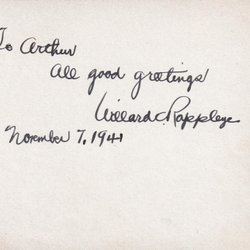 To Arthur
All good greetings
Willard C. Rappleye
November 7, 1941